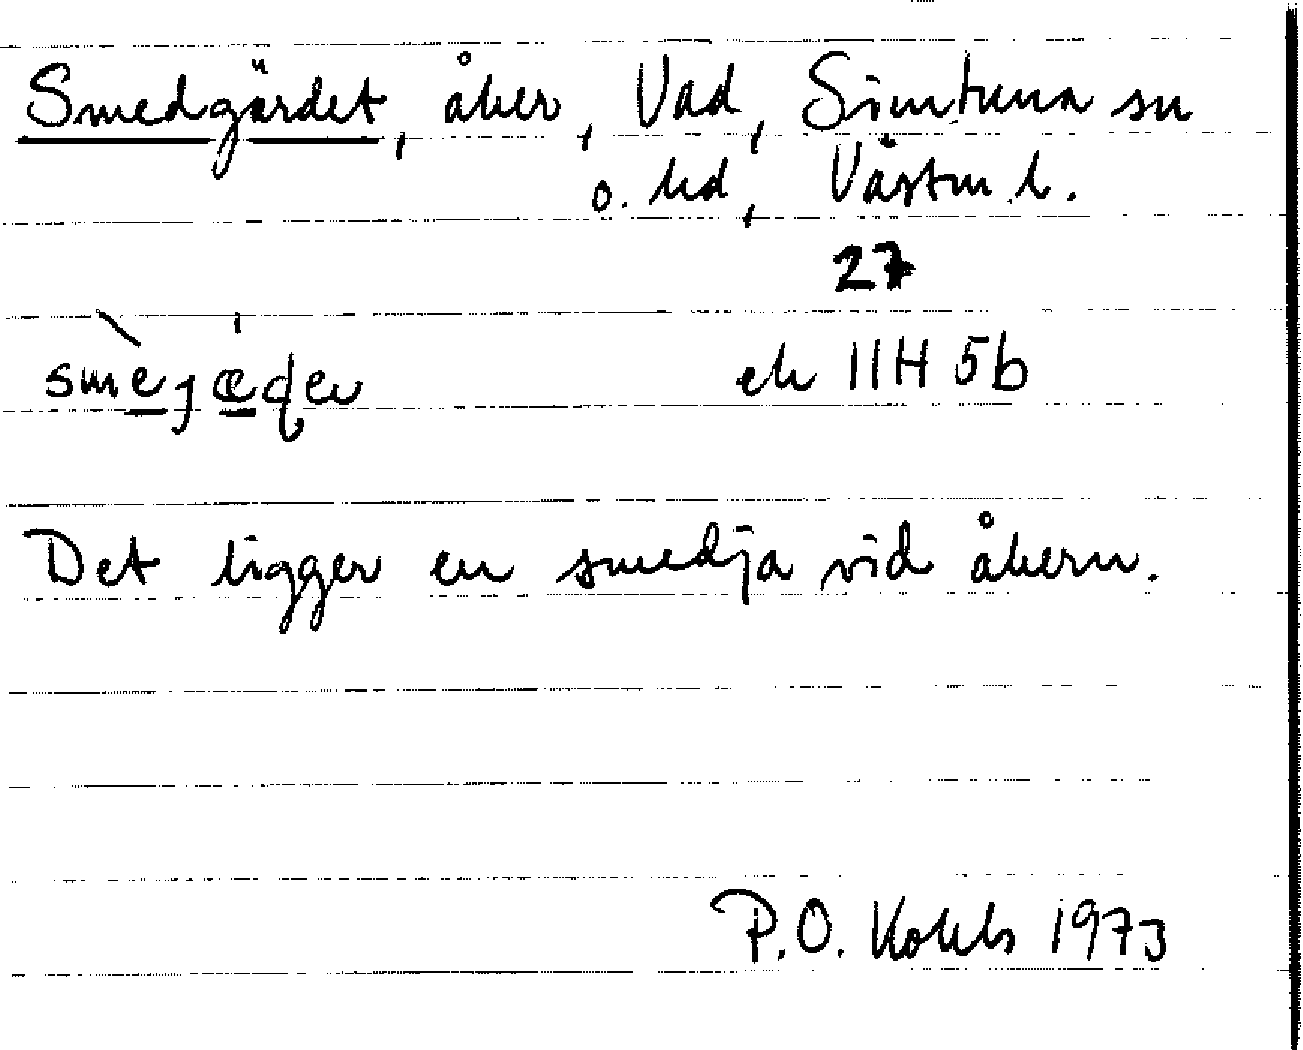 Smedgärdet, åker, Vad, Simtuna sn
o. hd, Västm. l.
27
ek 11H 5b
Det ligger en smedja vid åkern.
P.O. 1973